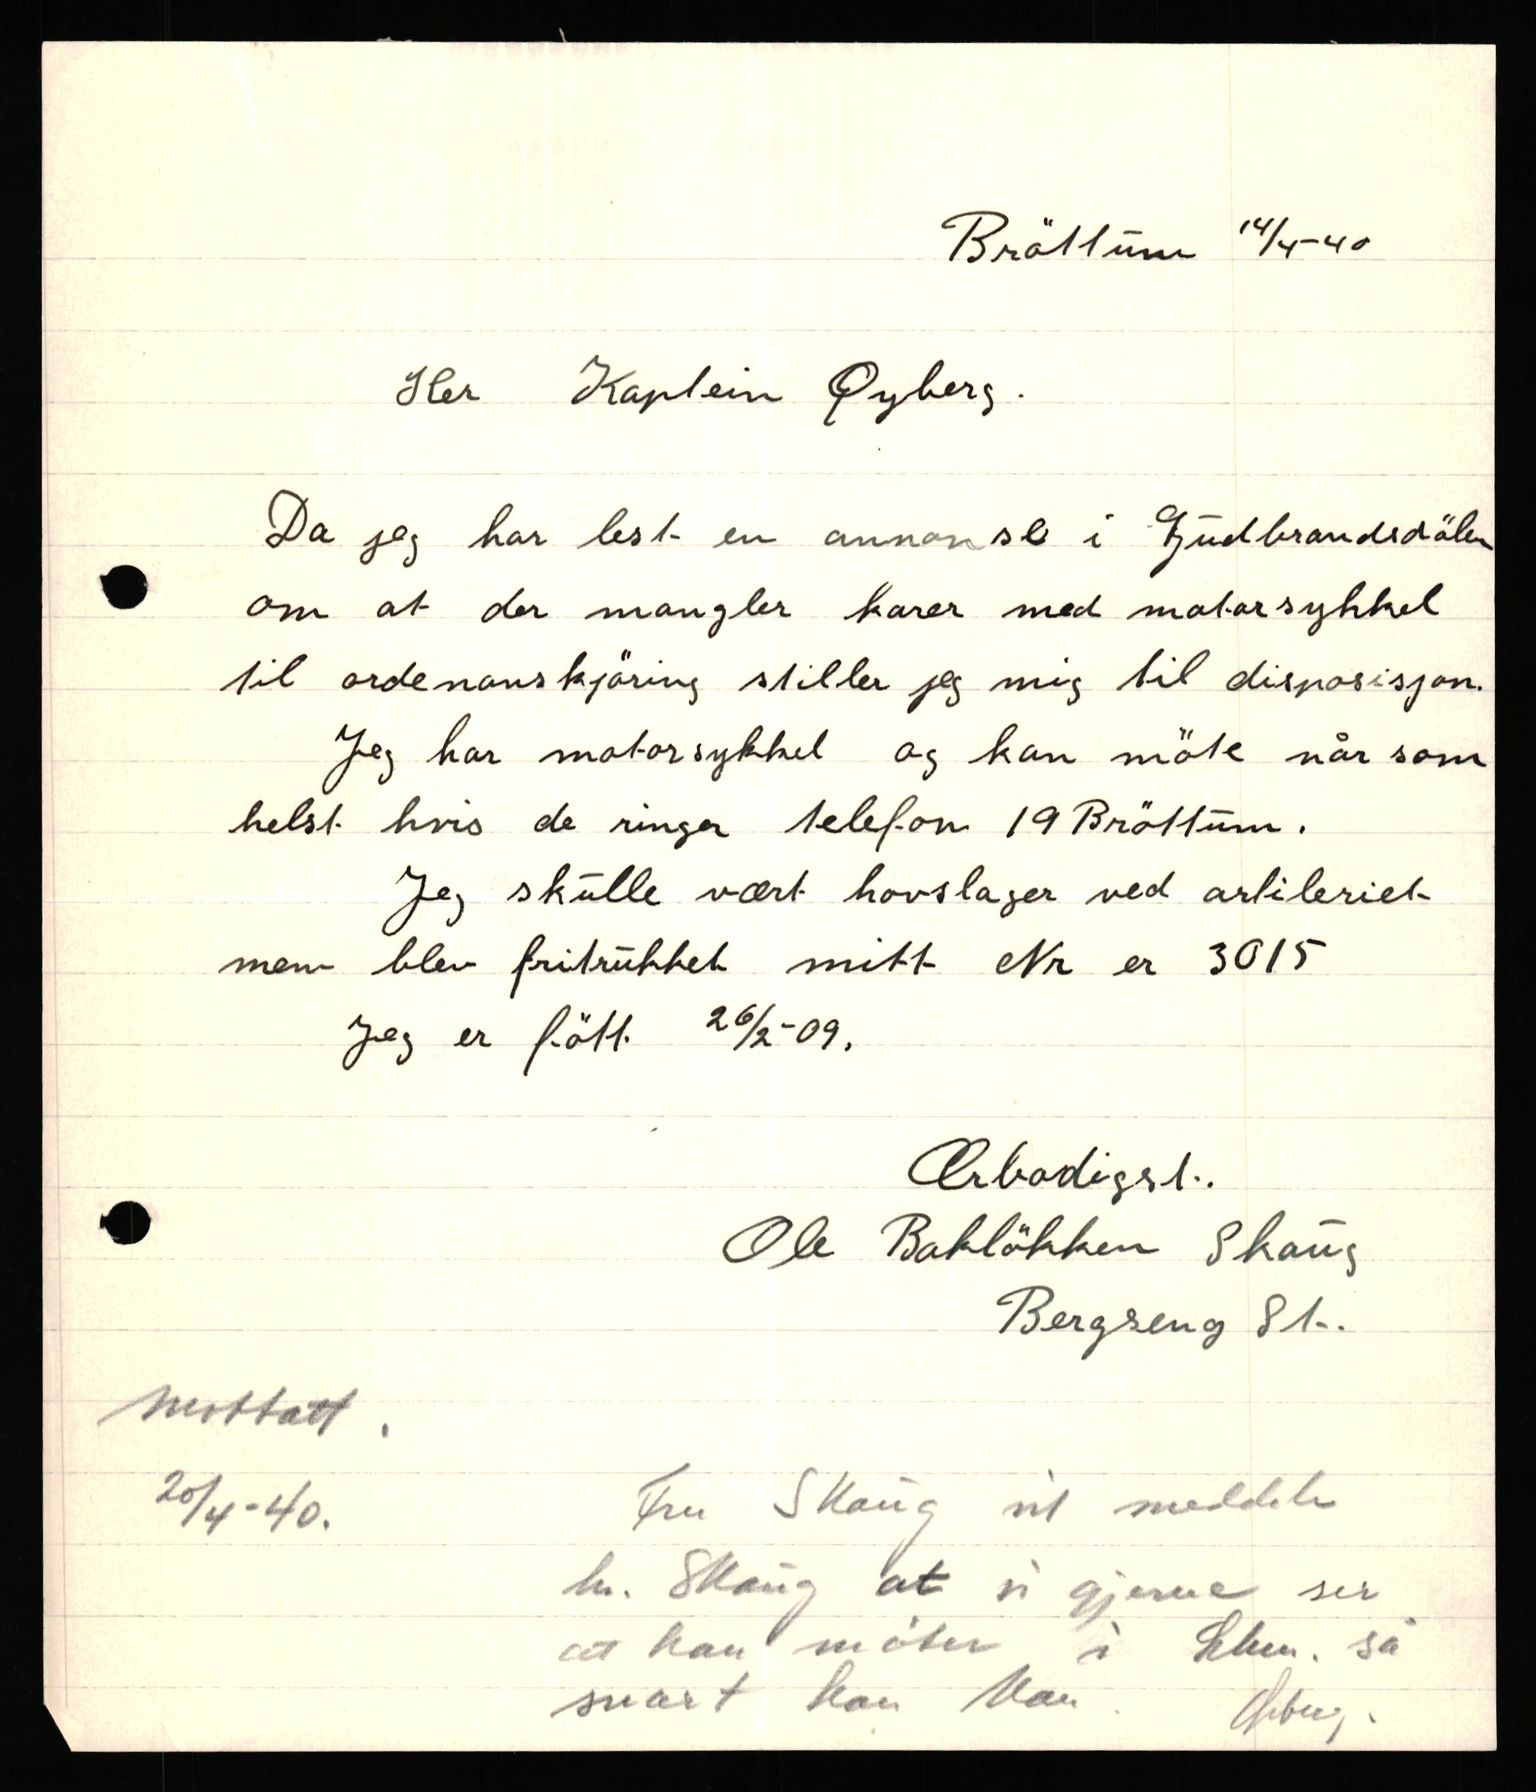 Bröttum 14/4-40
Her Kaptein Øyberg.
Da jeg har lest en annonse i Gudbrandsdölen
om at der mangler karer med motorsykkel
til ordenanskjöring stiller jeg mig til disposisjon.
Jeg har motorsykkel og kan möte når som
helst hvis de ringer telefon 19 Bröttum.
Jeg skulle vært hovslager ved artileriet
men blev fritrukket mitt Nr er 3015
Jeg er fött 26/2-09.
Ærbødigst.
Ole Baklökken Skaug
Bergseng St.
Mottatt.
20/4-40.
Fru Skaug vil meddele
hr. Skaug at vi gjerne ser
at han möter i Lhmr. så
snart han kan. Øyberg.